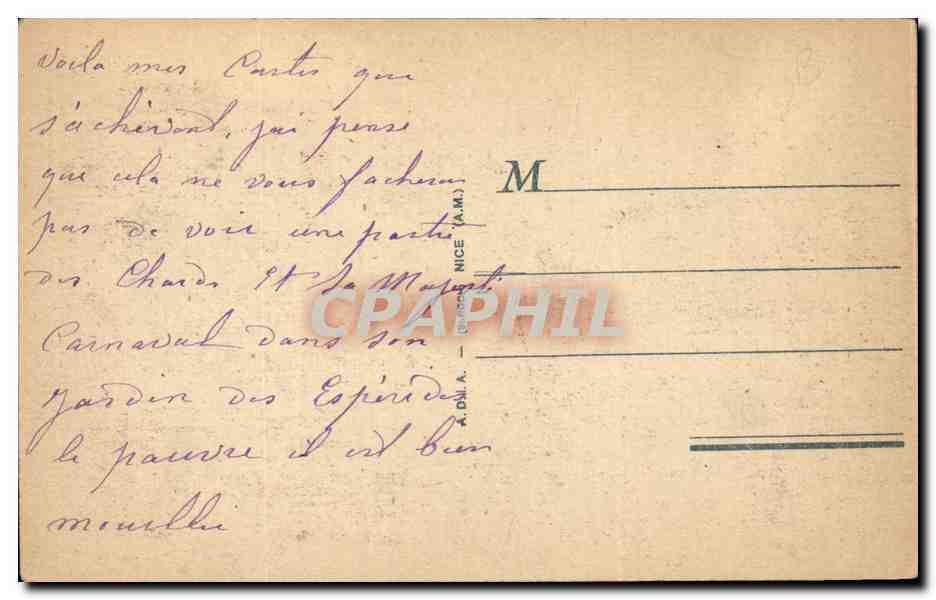 Voila mes Cartes que
s'achèvent, j'ai pense
que cela ne vous fachera
pas de voir une partie
des Chards Et Sa Majesté
Carnaval dans son
Jardin des Espérides
le pauvre il est bien
mouillie
M
A. D. I. A. — NICE (A.M.)
CPAPHIL